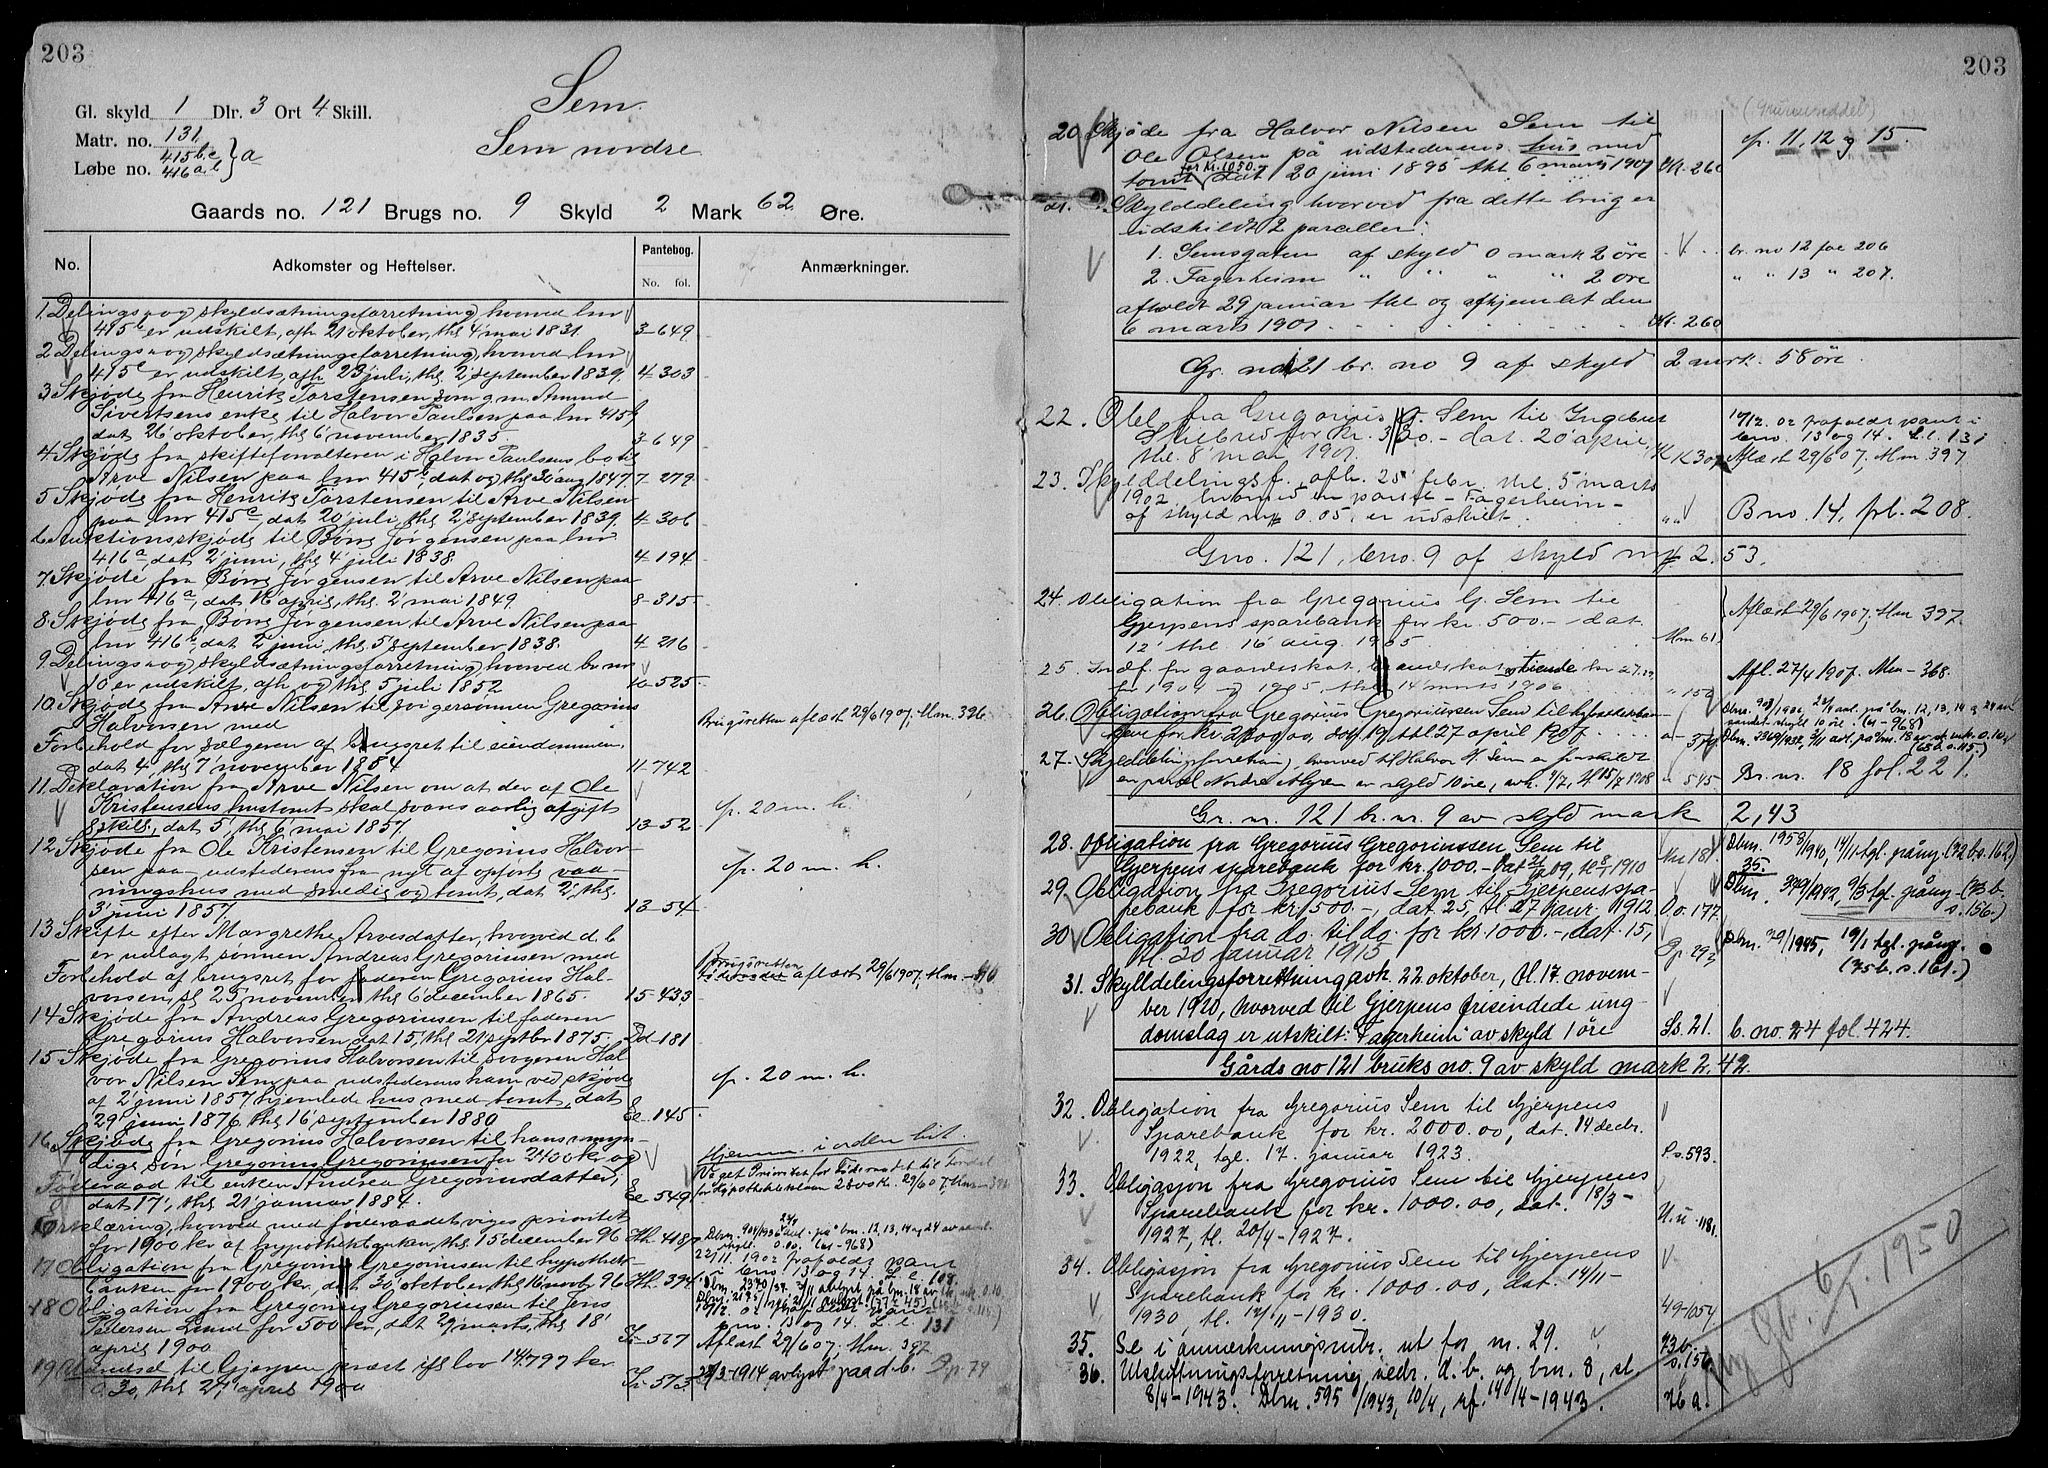 203
Sem.
Sem nordre
Gl. skyld 1 Dlr. 3 Ort 4 Skill.
Matr. no. 131
Løbe no. 415 b c
416 a b } a
Gaards no. 121 Brugs no. 9 Skyld 2 Mark 62 Øre.
No. Adkomster og Heftelser. Pantebog. No. fol. Anmærkninger.
1 Delings og skyldsætningsforretning, hvorved lnr
415 er udskilt, afh 21 oktober, thl 4 mai 1831 3-649
2 Delings og skyldsætningsforretning, hvorved lnr
415 c er udskilt, afh 23 juli, thl 2 september 1839. 4-303
3 Skjøde fra Henrik Torstensen som g.m. Amund
Sivertsens enke til Halvor Paulsen paa lnr 415 b
dat 26 oktober, thl 6 november 1835. 3-649
4 Skjøde fra skifteforvalteren i Halvor Paulsens bo til
Arve Nilsen paa lnr 415 b, dat og thl 30 aug 1847 7-279
5 Skjøde fra Henrik Torstensen til Arve Nilsen
paa lnr 415 c, dat 20 juli, thl 2 september 1839. 4-306
6 Auktionsskjøde til Børre Jørgensen paa lnr
416 a, dat 2 juni, thl 4 juli 1838. 4-194
7. Skjøde fra Børre Jørgensen til Arve Nilsen paa
lnr 416 a, dat 16 april, thl 2 mai 1849. 8-315
8. Skjøde fra Børre Jørgensen til Arve Nilsen paa
lnr 416 b, dat 2 juni, thl 5 september 1838. 4-216
9. Delings og skyldsætningsforretning, hvorved br no
10 er udskilt, afh og thl 5 juli 1852 10-525
10. Skjøde fra Arve Nilsen til svigersønnen Gregorius
Halvorsen med Brugsretten aflæst 29/6 1907, Mm. 396
Forbehold for sælgeren af brugsret til eiendommen,
dat 4, thl 7 november 1854 11-742
11. Deklaration fra Arve Nilsen om at der af Ole
Kristensens hustomt skal svares aarlig afgift cfr. 20 m. h.
8 skill., dat 5, thl 6 mai 1857. 13-52
12 Skjøde fra Ole Kristensen til Gregorius Halvor-
sen paa udstederens fra nyt af opførte vaa- cfr. 20 m. h.
ningshus med smedie og tomt, dat 2, thl
3 juni 1857. 13-54
13 Skifte efter Margrethe Arvesdatter, hvorved d. b.
er udlagt sønnen Andreas Gregoriusen med
Forbehold af brugsret for faderen Gregorius Hal- Brugsretten aflæst 29/6 1907, Mm
vorsen, sl 25 november thl 6 december 1865. 15-433
14 Skjøde fra Andreas Gregoriusen til faderen
Gregorius Halvorsen dat 15, thl 21 septbr 1875. Dd-181
15 Skjøde fra Gregorius Halvorsen til svogeren Hal-
vor Nilsen Sem paa udstederens ham ved skjøde cfr. 20 m. h.
af 2 juni 1857 hjemlede hus med tomt, dat
29 juni 1876 thl 16 september 1880 Ee-145
16 Skjøde fra Gregorius Halvorsen til hans myn- Hjemm. i orden hit.
dige søn Gregorius Gregoriusen for 2400 kr og
Føderaad til enken Andrea Gregoriusdatter, for Hypothekbank 2800 kr. 29/6 07, Mm
dat 17, thl 21 januar 1884. Ee 549
Erklæring, hvorved med føderaadet viges prioritet
for 1900 kr af hypothekbanken, thl 15 december 96 Hh. 418 Dbnr. 904/1936 avl. på bnr. 12, 13, 14 og 24 av saml.
skyld 0.10. (61-968)
17 Obligation fra Gregorius Gregoriusen til hypothek-
banken for 1900 kr, dat 30 oktober, thl 16 novbr 96 Hh. 394
18 Obligation fra Gregorius Gregoriusen til Jens
Pedersen Lund for 500 kr, dat 29 marts, thl 18
april 1900 Ii-567 Aflæst 29/6 07. Mm. 397
19 Udmelsel til Gjerpen præst ifl lov 14.797 kr
0.30, thl 27 april 1900 Ii-573 1914 avlyst paa d. b. Qp 79
203
(Grunnseddel)
20. Skjøde fra Halvor Nilsen Sem til
Ole Olsen på udstederens hus med cfr. 11, 12 og 15.
tomt for kr. 1050. dat 20 juni 1895 thl 6 marts 1901 Kk. 260
21. Skylddeling hvorved fra dette brug er
udskildt 2 parceller:
1. Semsgaten af skyld 0 mark 2 øre br. no 12 foe 206
2. Fagerheim " " " " 2 øre " " 13 " 207.
afholdt 29 januar thl og afhjemlet den
6 marts 1901 Kk. 260
Gr. no 121 br. no 9 af skyld 2 mrk. 58 øre.
22. Obl. fra Gregorius G. Sem til Ingebret
Stiebred for kr. 330.- dat. 20 april, bno. 13 og 14. L. l. 131
thl. 8 mai 1901. Kk 307 Aflæst 29/6 07, Mm. 397
23. Skylddelingsf., afh. 25 febr. thl. 5 marts
1902, hvorved en parcel - Fagerheim -
af skyld mk 0.05. er udskilt. " " Bno. 14, fol. 208.
Gno. 121, bno. 9 af skyld mk 2.53.
24. Obligation fra Gregorius G. Sem til
Gjerpens sparebank for kr. 500.- dat. } Aflæst 29/6 1907, Mm. 397.
12 thl 16 aug 1905 Mm 61.
25. Indf. for gaardeskat, brandskat og tiende kr 27.29
for 1904 og 1905, thl 14 marts 1906 " 152 Afl. 27/4 1907. Mm - 268.
26. Obligation fra Gregorius Gregoriussen Sem til hypothekban-
ken for kr 2800,00, dat 19 thl 27 april 1907. " - 379
27. Skylddelingsforretning, hvorved til Halvor N. Sem er fraskildt
en parcel Nordre Myren av skyld 10 øre, avh. 7/7, tl 15/7 1908 " 545 Br. nr. 18 fol. 221.
Gr. nr. 121 br. nr. 9 av skyld mark 2,43
28. Obligation fra Gregorius Gregoriussen Sem til Dbnr. 1958/1940, 14/11 tgl. pång. (72 b s. 162.)
Gjerpens sparebank for kr. 1000.- Dat 09, tl 8/1 1910 Nn 181
29. Obligation fra Gregorius Sem til Gjerpens spa- 35. Dbnr. 379/1942, 9/3 tgl. pång - (73 b
rebank for kr. 1500.-, dat 25, tl. 27 januar, 1912. Oo. 177. s. 156.)
30 Obligation fra do. til do. for kr. 1000.-, dat. 15, Dbnr. 29/1945, 19/1 tgl. pång.
tl. 20 januar 1915 Qp. 29 (75 b. s. 161.)
31. Skylldelingsforrettning, avh. 22 oktober, tl. 17 novem-
ber 1920, hvorved til Gjerpens frisindede ung
domslag er utskilt: "Fagerheim" av skyld 1 øre Ss. 21. b. no. 24 fol 424.
Gårds no 121 bruks no. 9 av skyld mark 2.42.
32. Obligation fra Gregorius Sem til Gjerpens
Sparebank for kr. 2000.00, dat. 14 decbr.
1922, tgl. 17. januar 1923. Ss. 593.
33. Obligasjon fra Gregorius Sem til Gjerpens
Sparebank for kr. 1000.00, dat. 18/3-
1927, tl. 20/4-1927. U.u. 1181.
34. Obligasjon fra Gregorius Sem til Gjerpens
Sparebank for kr. 1000.00, dat. 14/11-
1930, tl. 17/11-1930. 49-1054
35. Se i anmerkningsrubr. ut for nr. 29. 73 b. s. 156
36. Utskiftningsforretning vedr. d. b. og bnr. 8, sl.
8/4-1943. Dbnr. 595/1943, 10/4, rf. 14/4-1943. 76 a.
Ny gb. 6/1. 1950